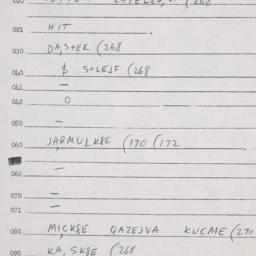 021 HIT
030 DA,S+EK (268
$ S+LEJF (268
040 —
041 —
042 O
050 —
060 JARMULK8E (170 (172
062 —
070 —
071 —
080 MICK8E QAZEJVA KUCME (270
090 KA, SK8E (268